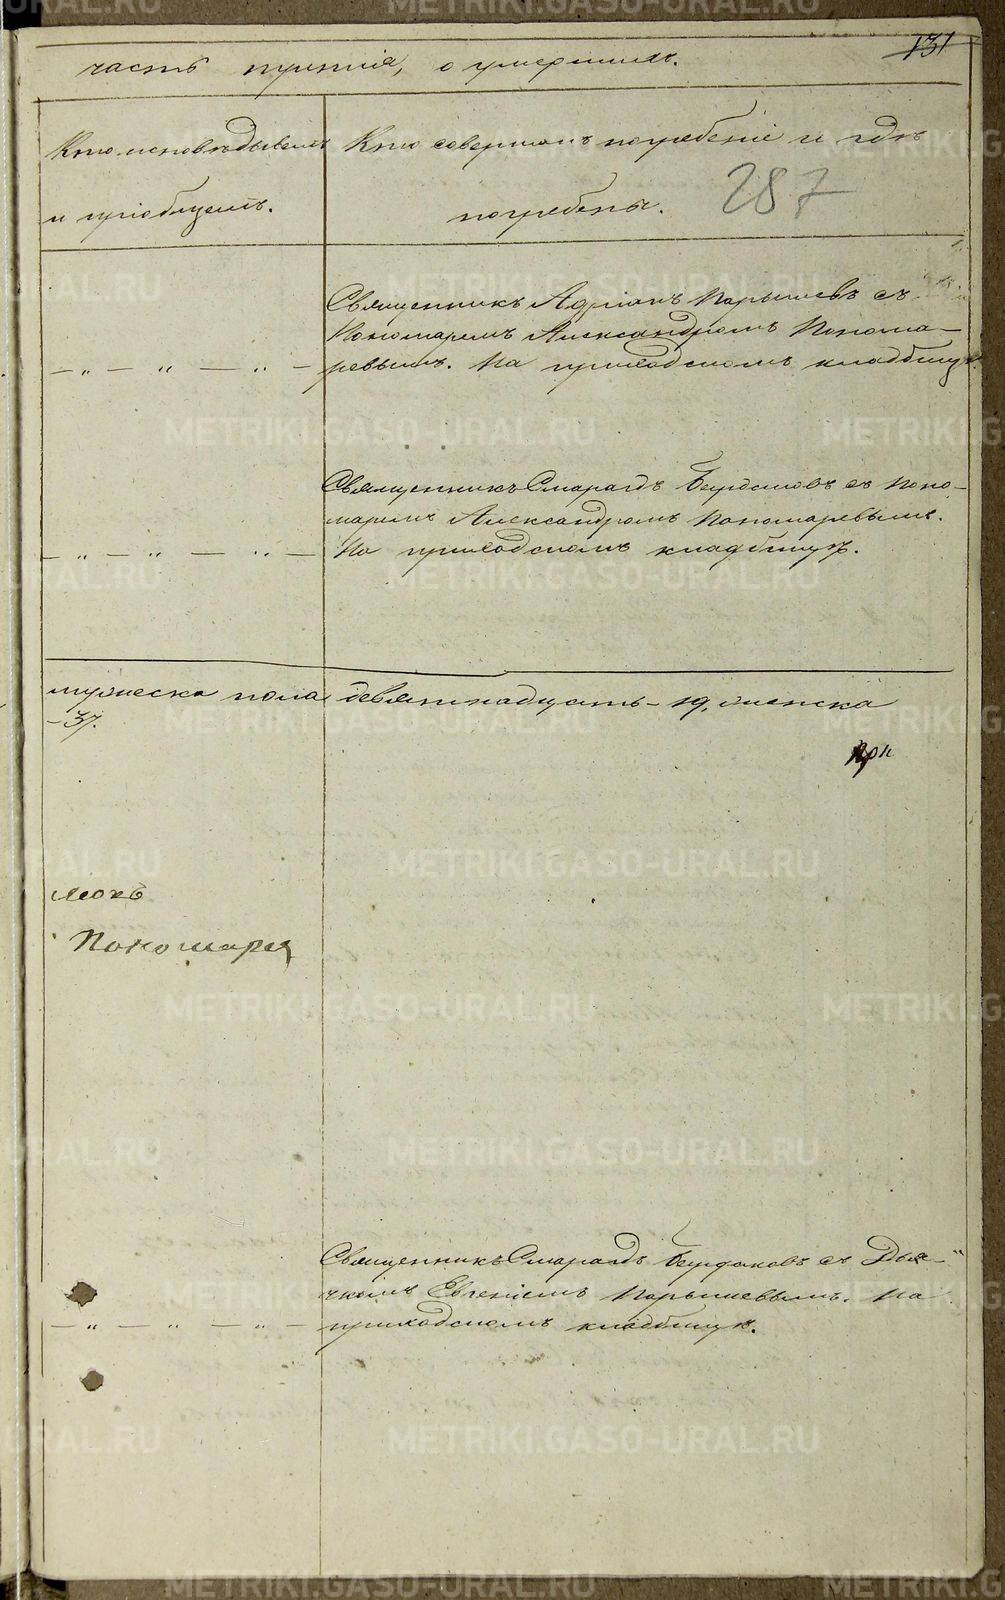 131
часть третія, о умершихъ.
Кто исповѣдывалъ
и пріобщалъ.
Кто совершалъ погребеніе и гдѣ
погребены.
287
Священникъ Адріанъ Парышевъ съ
Пономаремъ Александромъ Понома-
ревымъ. На приходскомъ кладбищѣ.
— „ — „ — „ —
Священникъ Смарагдъ Бурдаковъ съ Поно-
маремъ Александромъ Пономаревымъ.
— „ — „ — „ — На приходскомъ кладбищѣ.
мужеска пола девятнадцать - 19, женска
- 37.
При
Пономаря
Священникъ Смарагдъ Бурдаковъ съ Дья-
чкомъ Евгеніемъ Парышевымъ. На
— „ — „ — „ — приходскомъ кладбищѣ.
METRIKI.GASO-URAL.RU